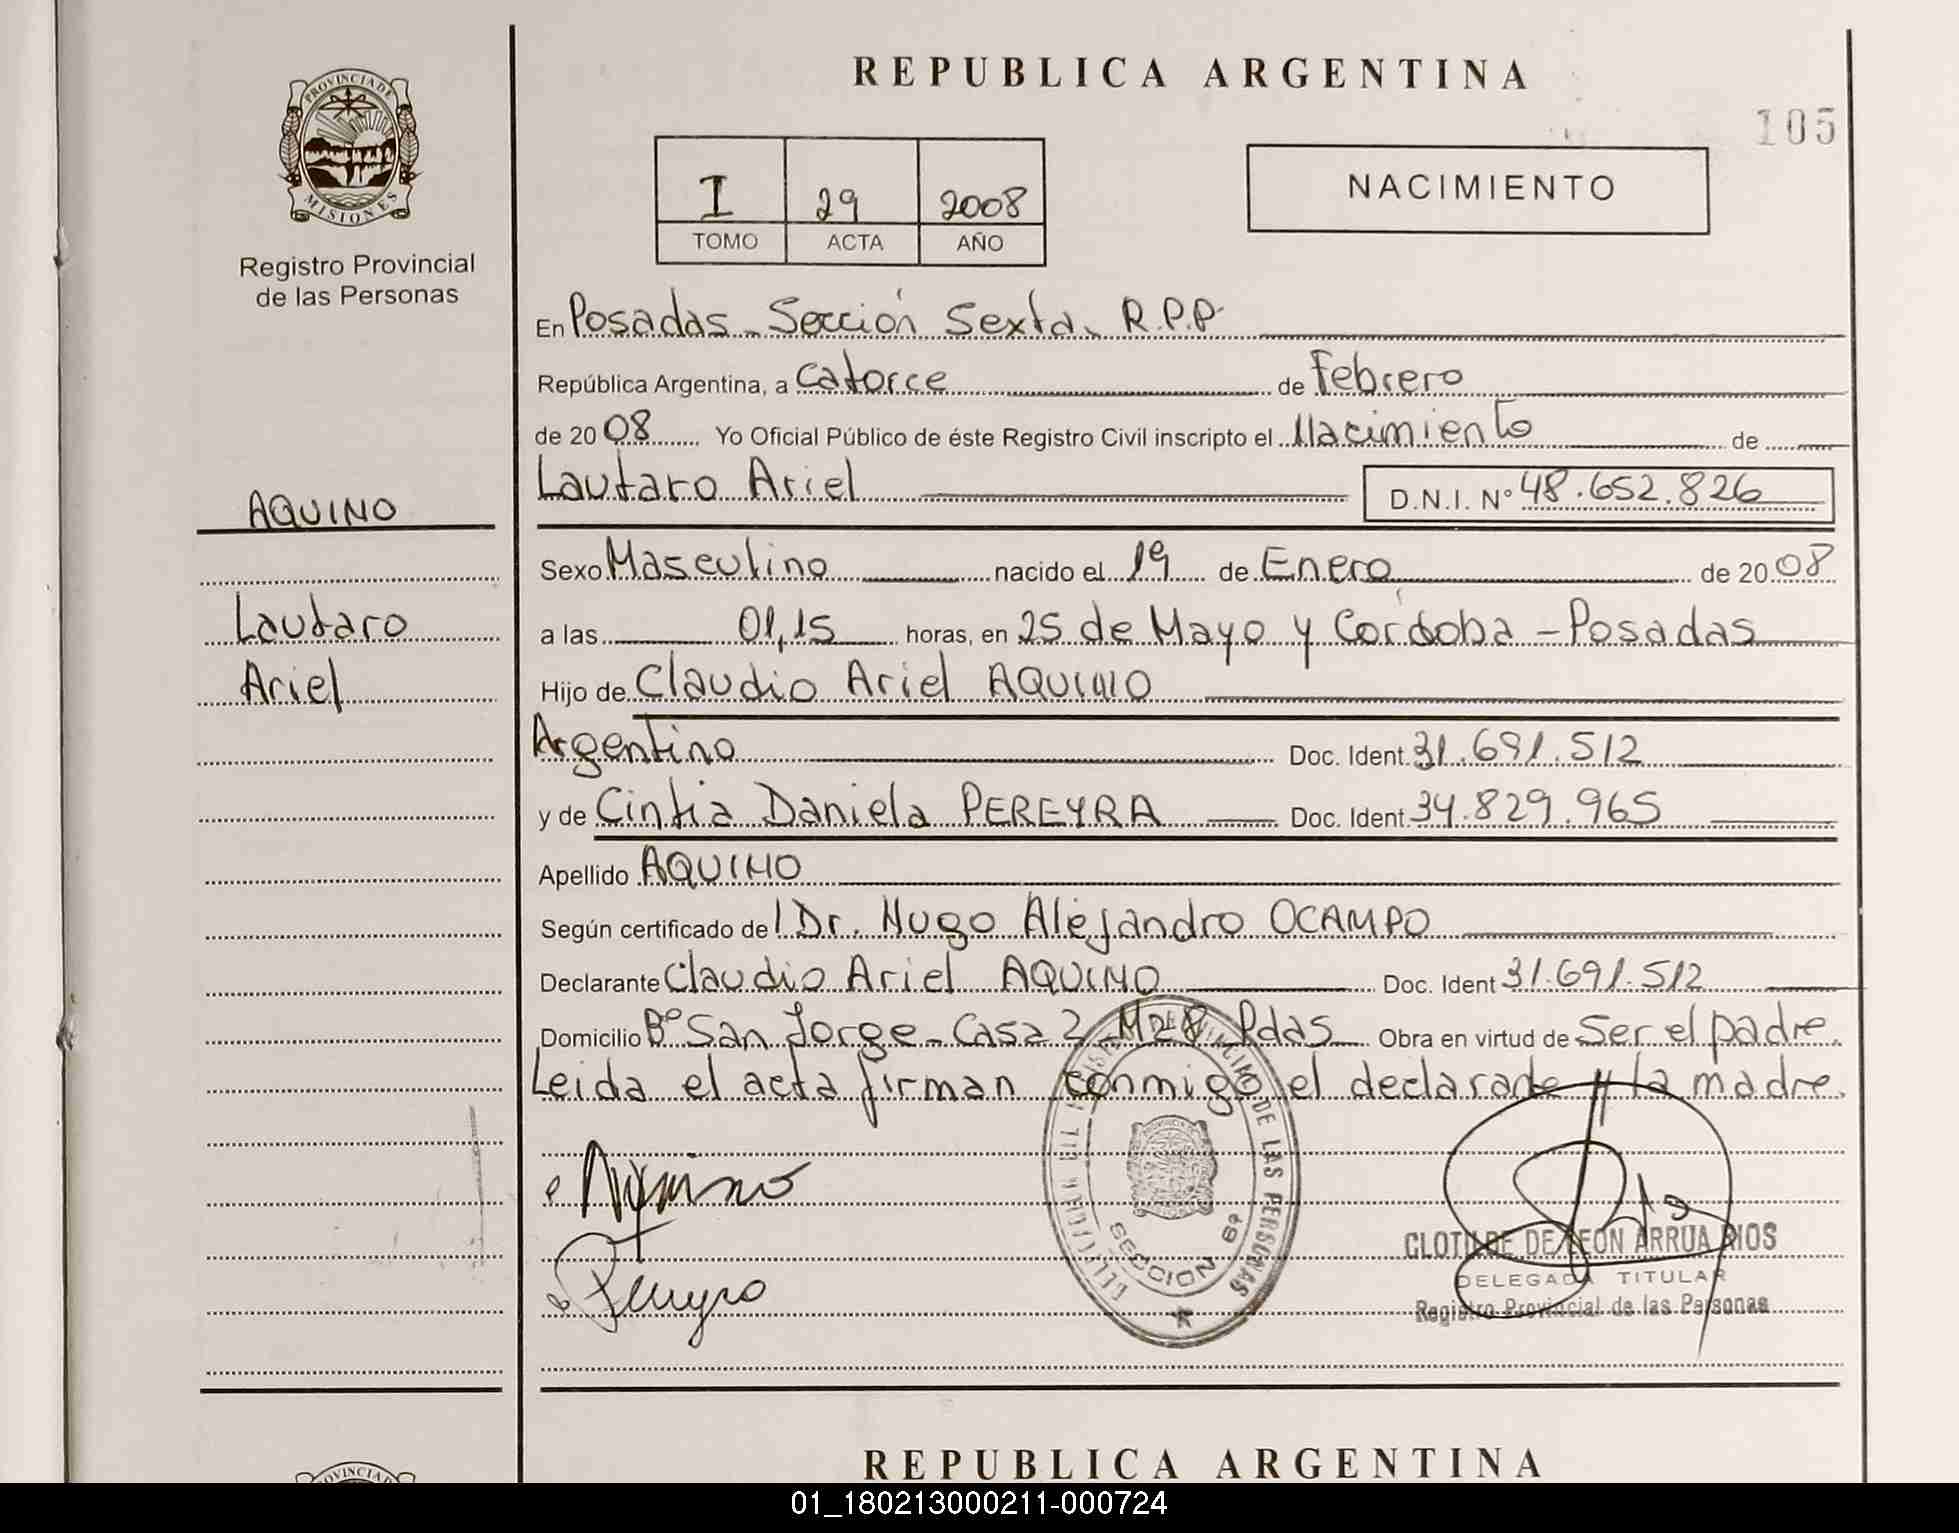 PROVINCIA DE
MISIONES
Registro Provincial
de las Personas
AQUINO
Lautaro
Ariel
REPUBLICA ARGENTINA
105
I 29 2008
TOMO ACTA AÑO
NACIMIENTO
En Posadas - Sección Sexta. R.P.P
República Argentina, a catorce de febrero
de 2008 Yo Oficial Público de éste Registro Civil inscripto el Nacimiento de
Lautaro Ariel D.N.I. Nº 48.652.826
Sexo Masculino nacido el 19 de Enero de 2008
a las 01,15 horas, en 25 de Mayo y Córdoba - Posadas
Hijo de Claudio Ariel AQUINO
Argentino Doc. Ident. 31.691.512
y de Cintia Daniela PEREYRA Doc. Ident. 34.829.965
Apellido AQUINO
Según certificado de l Dr. Hugo Alejandro OCAMPO
Declarante Claudio Ariel AQUINO Doc. Ident 31.691.512
Domicilio Bº San Jorge - Casa 2 - M28 Pdas Obra en virtud de Ser el padre.
Leida el acta firman conmigo el declarante y la madre.
Aquino
Pereyra
DE LAS PERSONAS
SECCION 6ª
CLOTILDE DE LEON ARRUA RIOS
DELEGADA TITULAR
Registro Provincial de las Personas
REPUBLICA ARGENTINA
PROVINCIA DE
01_180213000211-000724